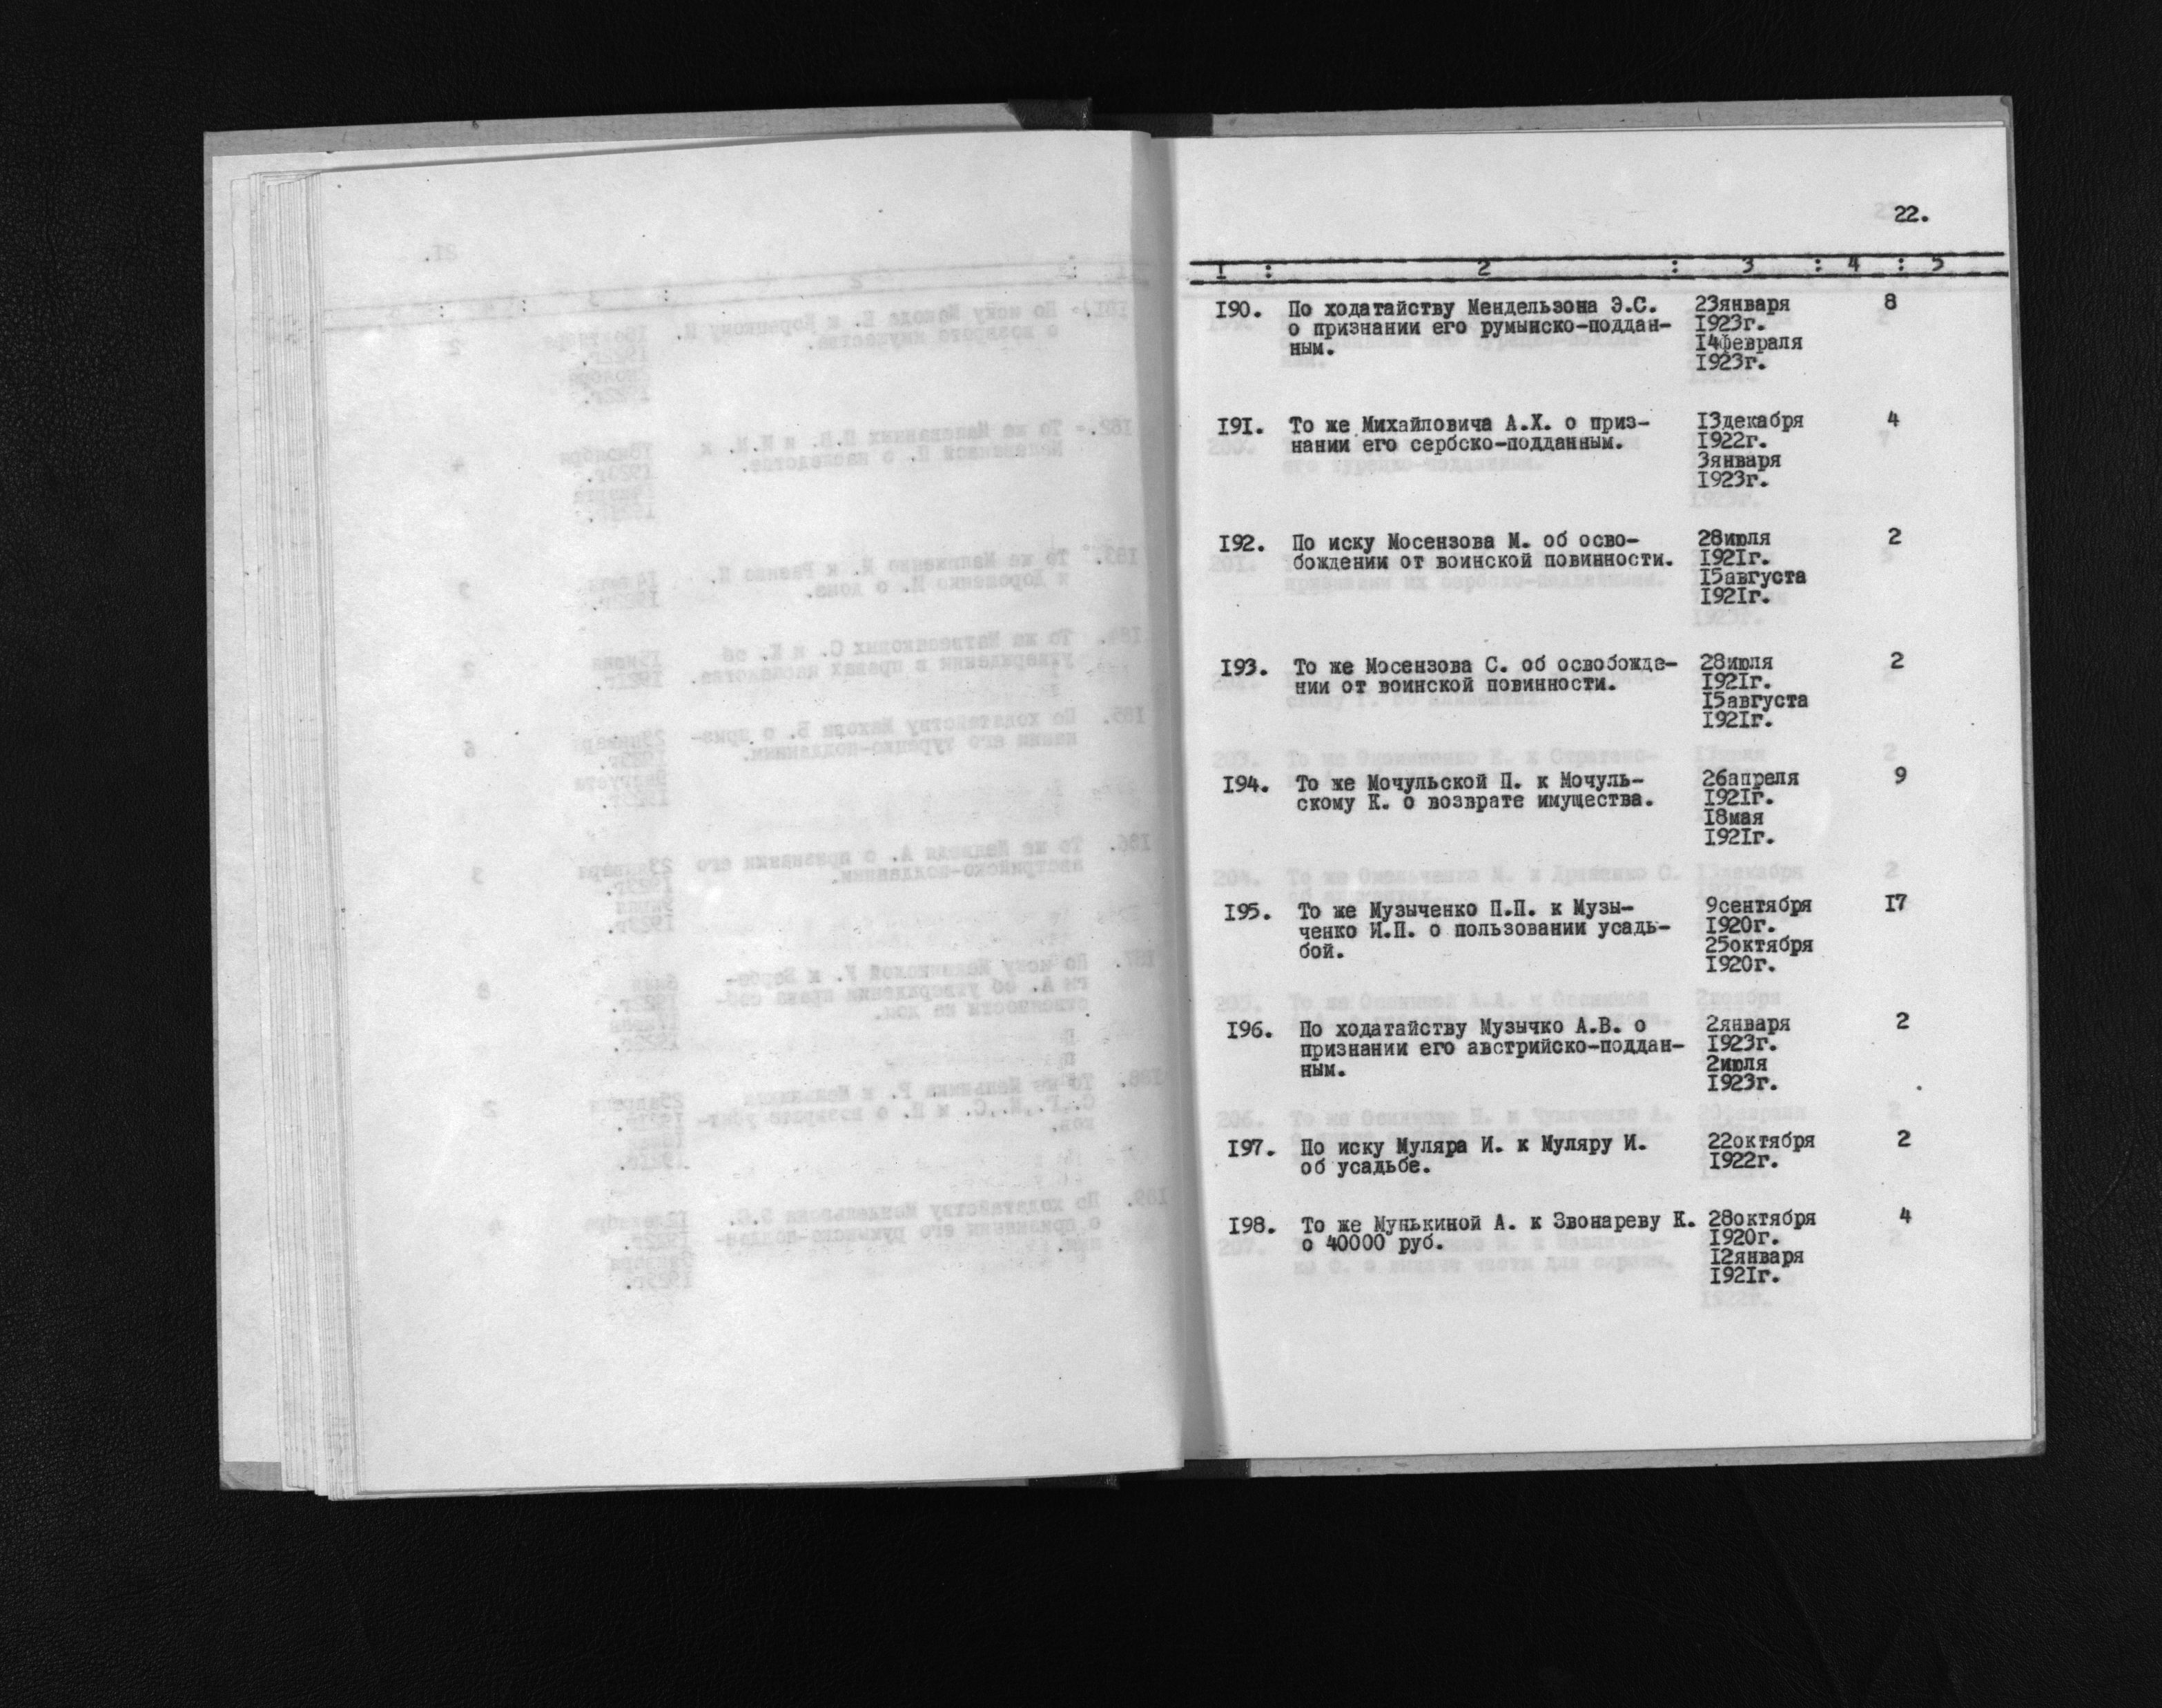 22.
1 : 2 : 3 : 4 : 5
I90. По ходатайству Мендельзона Э.С. 23января 8
о признании его румынско-поддан- I923г.
ным. I4февраля
I923г.
I9I. То же Михайловича А.Х. о приз- I3декабря 4
нании его сербско-подданным. I922г.
3января
I923г.
I92. По иску Мосензова М. об осво- 28июля 2
бождении от воинской повинности. I92Iг.
I5августа
I92Iг.
I93. То же Мосензова С. об освобожде- 28июля 2
нии от воинской повинности. I92Iг.
I5августа
I92Iг.
I94. То же Мочульской П. к Мочуль- 26апреля 9
скому К. о возврате имущества. I92Iг.
I8мая
I92Iг.
I95. То же Музыченко П.П. к Музы- 9сентября I7
ченко И.П. о пользовании усадь- I920г.
бой. 25октября
I920г.
I96. По ходатайству Музычко А.В. о 2января 2
признании его австрийско-поддан- I923г.
ным. 2июля
I923г.
I97. По иску Муляра И. к Муляру И. 22октября 2
об усадьбе. I922г.
I98. То же Мунькиной А. к Звонареву К. 28октября 4
о 40000 руб. I920г.
I2января
I92Iг.